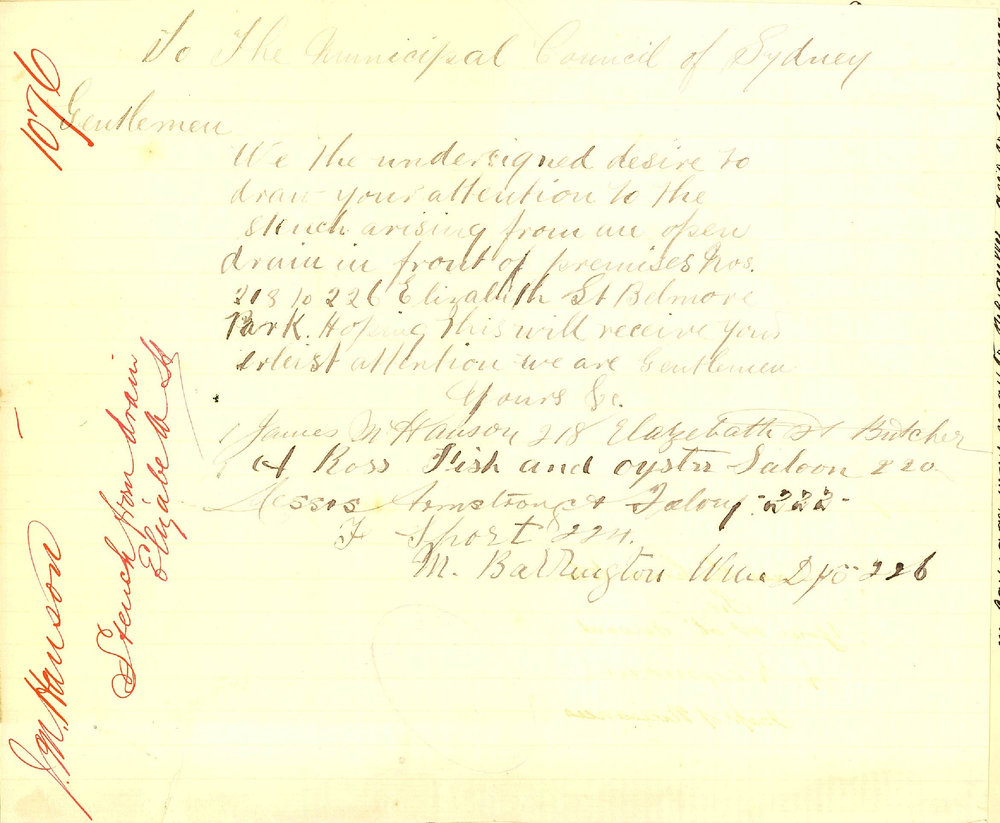 To The Municipal Council of Sydney
Gentlemen
We the undersigned desire to
draw your attention to the
stench arising from an open
drain in front of premises Nos.
218 to 226 Elizabeth St Belmore
Park. Hoping this will receive your
attention we are Gentlemen
Yours &c.
James M Hanson 218 Elazebath St Butcher
A Ross Fish and oystr Saloon 220
Messrs Armstrong & 222
F Short 224.
M. Barrington Wine 226
1076
Stench from drain
Elizabeth St
J. M. Hanson